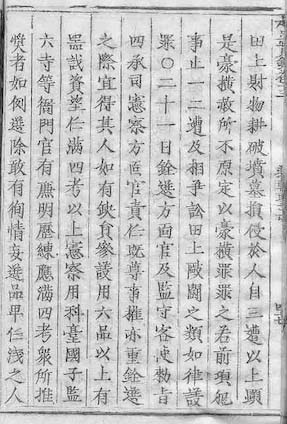 田土財物耕破墳墓損侵於人自三遭以上顯
是豪橫敕所不原定以豪橫罪罪之若前項規
事止一二遭及相爭訟田土毆鬬之類如律議
罪○二十一日銓選方面官及監守客使勑旨
四承司憲察方面官責任既專事權亦重銓選
之際宜得其人如有缺食參議用六品以上有
器識資望仁滿四考以上憲察用科臺國子監
六寺等衙門官有廉明歷練應滿四考衆所推
奬者如例選除敢有徇情妄選品卑仁淺之人